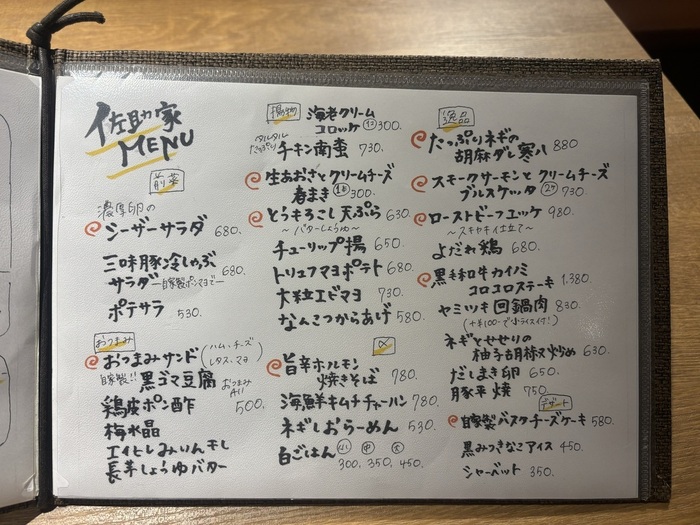 佐助家
MENU
前菜
濃厚卵の
シーザーサラダ 680.
三味豚冷しゃぶ
サラダ ―自家製ポン酢まよで― 680.
ポテサラ 530.
おつまみ
おつまみサンド (ハム・チーズ
レタス・マヨ)
自家製!! 黒ゴマ豆腐
鶏皮ポン酢
梅水晶
エイヒレみりん干し
長芋しょうゆバター
おつまみ
All
500.
揚物
海老クリーム
コロッケ 1コ 300.
タルタル
たっぷり
チキン南蛮 730.
生あおさとクリームチーズ
春まき 1本 300.
とうもろこし天ぷら 630.
〜バターしょうゆ〜
チューリップ揚 650.
トリュフマヨポテト 680.
大粒エビマヨ 730.
なんこつからあげ 580.
〆
旨辛ホルモン
焼きそば 780.
海鮮キムチチャーハン 780.
ネギしおらーめん 530.
白ごはん 小 中 大
300. 350. 450.
逸品
たっぷりネギの
胡麻ダレ寒八 880
スモークサーモンとクリームチーズ
ブルスケッタ 2ケ 730.
ローストビーフユッケ 980.
〜スキヤキ仕立て〜
よだれ鶏 680.
黒毛和牛カイノミ
コロコロステーキ 1,380.
ヤミツキ回鍋肉 830.
(+¥100-で小ライス付!)
ネギとせせりの
柚子胡椒炒め 630.
だしまき卵 650.
豚平焼 750.
デザート
自家製バスクチーズケーキ 580.
黒みつきなこアイス 450.
シャーベット 350.